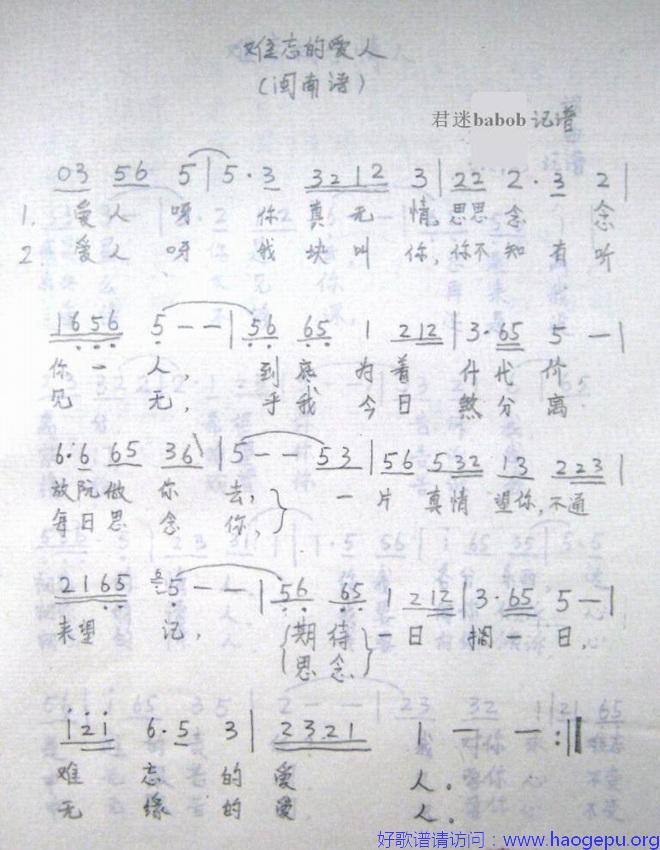 难忘的爱人
(闽南语)
君迷babob 记谱
03 56 5 | 5·3 3212 3 | 22 2·3 2 |
1. 爱人呀 你真无情,思思念念
2. 爱人呀 我块叫你,你不知有听
1656 5 - - | 56 65 1 212 | 3·65 5 - |
你一人, 到底为着什代价
见无, 乎我今日煞分离
6·6 65 36 | 5 - - 53 | 56 532 13 223 |
放阮做你去, 一片真情望你,不通
每日思念你,
2165 65 - - | 56 65 1 212 | 3·65 5 - |
来望记, {期待} 一日搁一日,
{思念}
121 6·5 3 | 2321 1 - - :||
难忘的爱人。
无缘的爱人。
好歌谱请访问:www.haogepu.org